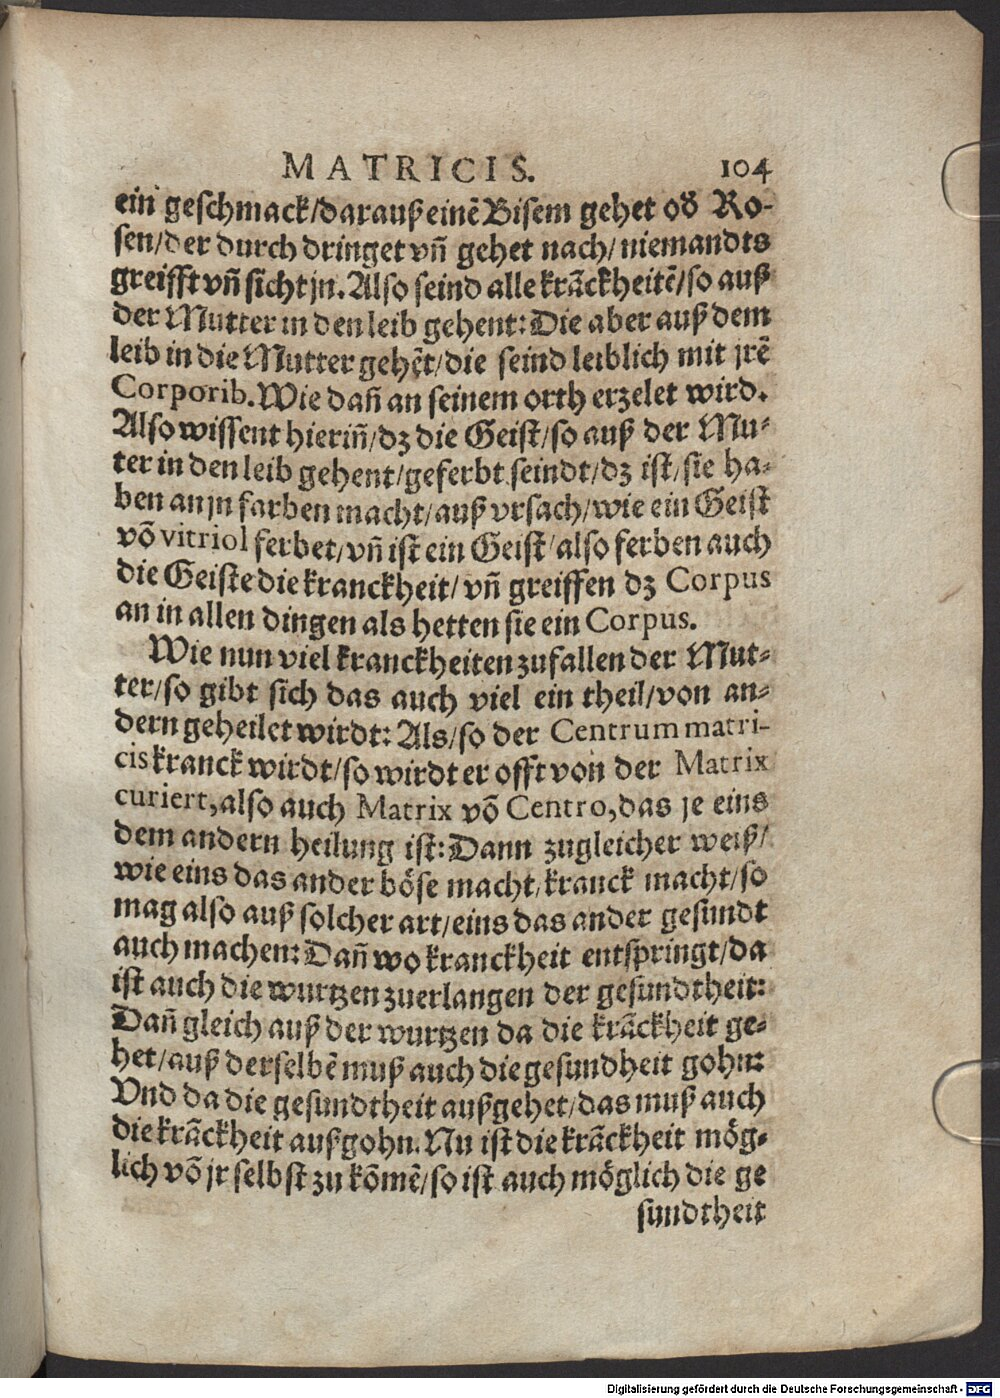 MATRICIS. 104
ein geschmack/darauß einẽ Bisem gehet oď Ro-
sen/der durch dringet vñ gehet nach/niemandts
greifft vñ sicht jn. Also seind alle krãckheitẽ/so auß
der Mutter in den leib gehent: Die aber auß dem
leib in die Mutter gehẽt/die seind leiblich mit jrẽ
Corporib. Wie dañ an seinem orth erzelet wird.
Also wissent hieriñ/dz die Geist/so auß der Mu-
ter in den leib gehent/geferbt seindt/dz ist/sie ha-
ben an jn farben macht/auß vrsach/wie ein Geist
võ vitriol ferbet/vñ ist ein Geist/also ferben auch
die Geiste die kranckheit/vñ greiffen dz Corpus
an in allen dingen als hetten sie ein Corpus.
Wie nun viel kranckheiten zufallen der Mut-
ter/so gibt sich das auch viel ein theil/von an-
dern geheilet wirdt: Als/so der Centrum matri-
cis kranck wirdt/so wirdt er offt von der Matrix
curiert, also auch Matrix võ Centro, das je eins
dem andern heilung ist: Dann zugleicher weiß/
wie eins das ander böse macht/kranck macht/so
mag also auß solcher art/eins das ander gesundt
auch machen: Dañ wo kranckheit entspringt/da
ist auch die wurtzen zuerlangen der gesundtheit:
Dañ gleich auß der wurtzen da die krãckheit ge-
het/auß derselbẽ muß auch die gesundheit gohn:
Vnd da die gesundtheit außgehet/das muß auch
die krãckheit außgohn. Nu ist die krãckheit mög-
lich võ jr selbst zu kõmẽ/so ist auch möglich die ge
sundtheit
Digitalisierung gefördert durch die Deutsche Forschungsgemeinschaft - DFG